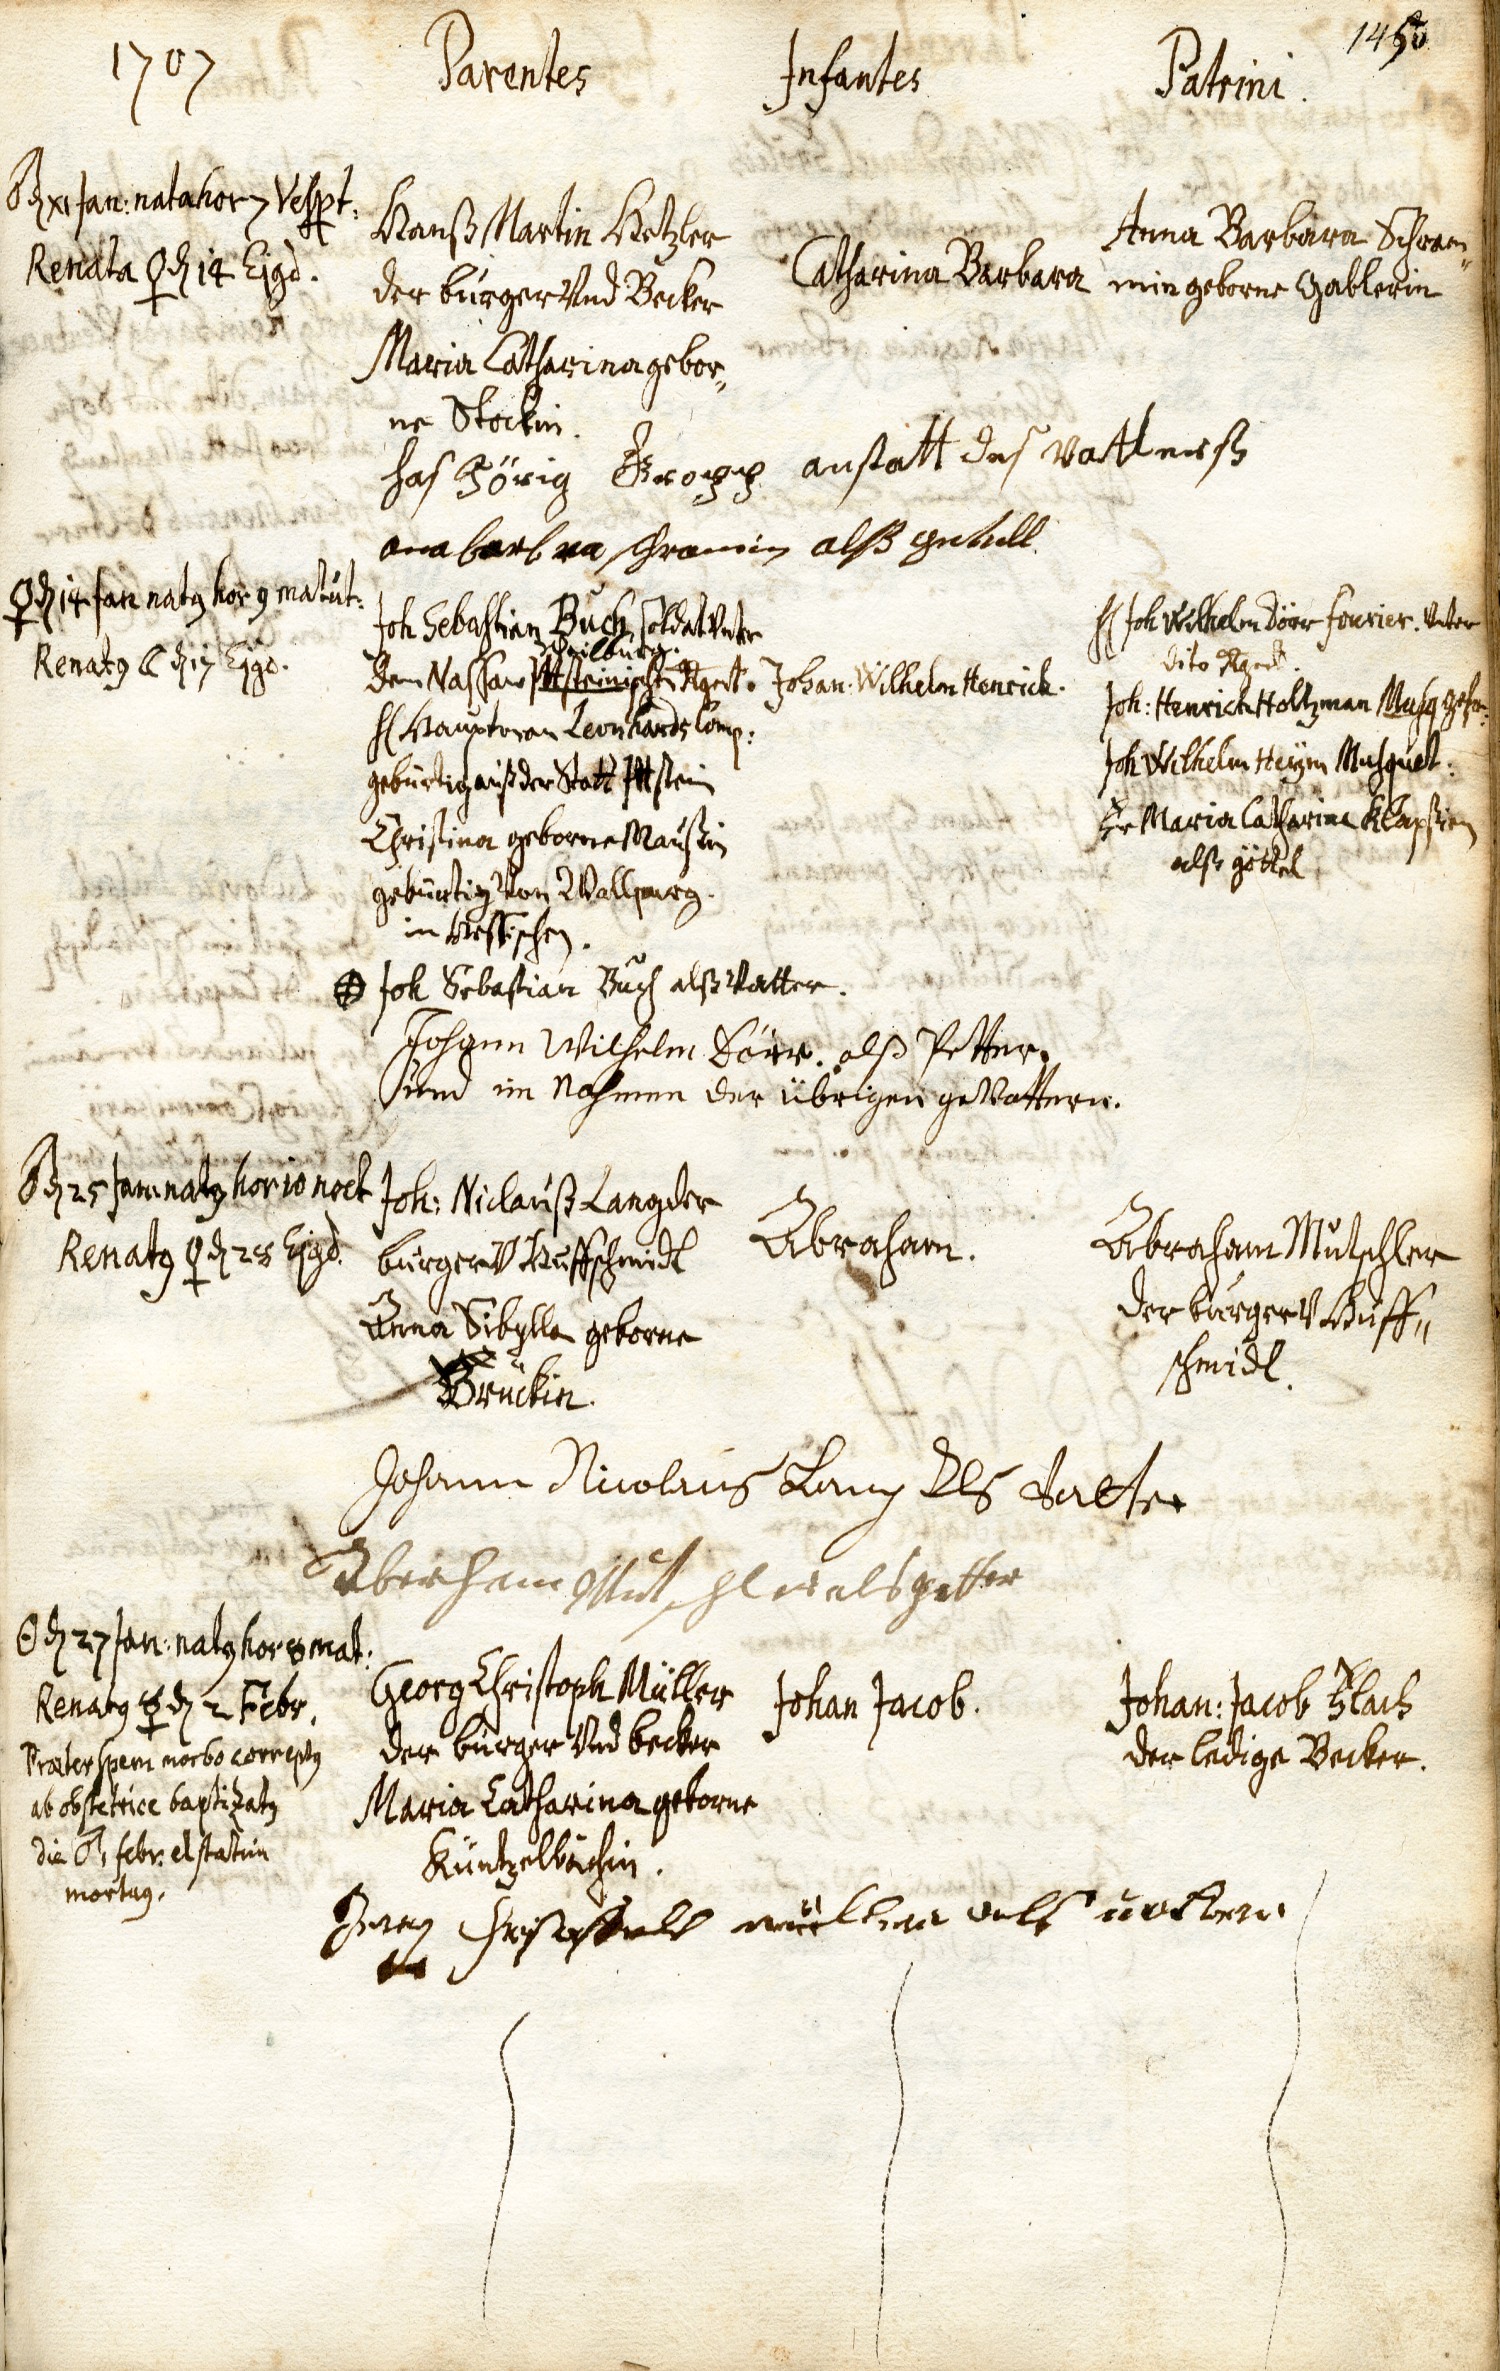 1707 Parentes Infantes Patrini.
♂ d xi Jan: nata hor 7 Vespt:
Renata ♀ d 14 Ejgd.
Hanß Martin Hetzler
der burger Und Becker
Maria Catharina gebor„
ne Stockin.
Catharina Barbara
Anna Barbara Schram„
min geborne Gablerin
has Jörig Gropp anstatt des vatterß
ana barbra schramin alß gettell
♀ d 14 Jan natg hor 9 matut:
Renatg ☾ d 17 Ejgd.
Joh Sebastian Buch soldat Unter
Weilburg.
dem Nassaw Ittsteinischen Regmt.
H Hauptman Leonhards Comp:
gebürtig auß der Statt Ittstein
Christina geborne Maußin
gebürtig Von Wallpurg.
in Hessischen.
Johan: Wilhelm Henrich.
H Joh Wilhelm Dörr fourier. Unter
dito Regmt.
Joh: Henrich Holtzman Musq
Joh Wilhelm Heym Musquet.
Fr Maria Catharina
alß göttel
Joh Sebastian Buch alß Vatter.
Johann Wilhelm Dörr. alß Petter.
und im Nahmen der übrigen geVattern.
♂ d 25 Jan: natg hor 10 noct
Renatg ♀ d 28 Ejgd.
Joh: Niclauß Lang der
burger V Huffschmidt
Anna Sibylla geborne
Brückin.
Abraham.
Abraham Mutschler
der burger V Huff„
schmidt.
Johann Nicolaus Lang Als Vatter
Aberham Mutschler als petter
☉ d 27 Jan: natg hor 8 mat:
Renatg ☿ d 2 Febr.
Præter spem morbo correptg
ab obstetrice baptizatg
die ♂ 1 febr. et statim
mortug.
Georg Christoph Müller
der burger Und becker
Maria Catharina geborne
Küntzelbächin.
Johan Jacob.
Johan: Jacob Flach
der ledige Becker.
müller als vatter